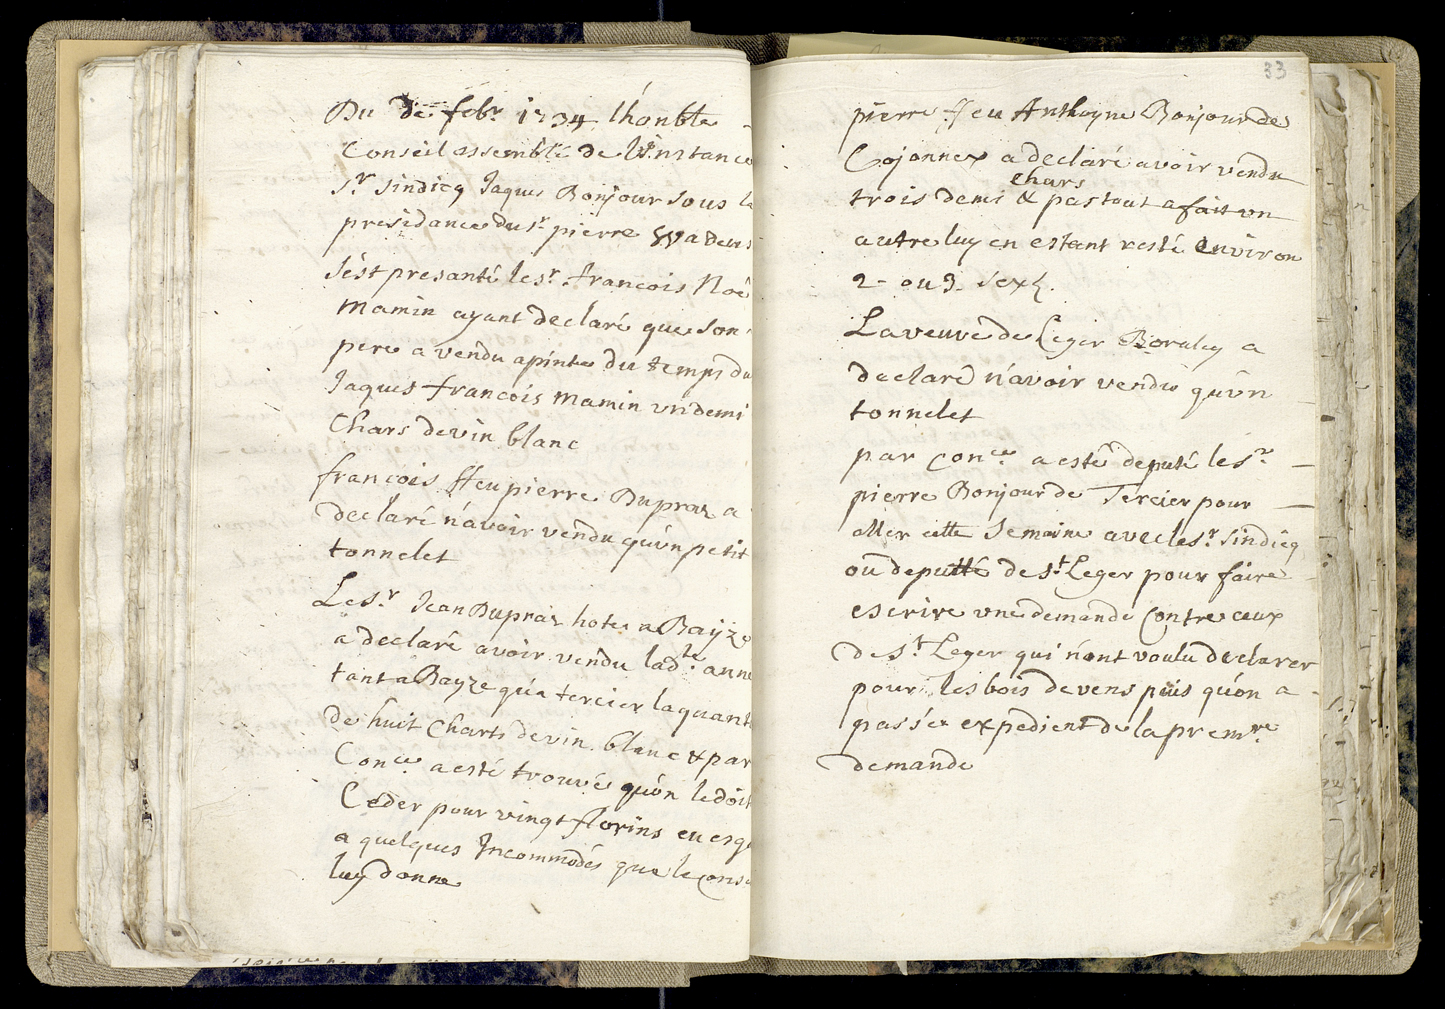 Du de febr. 1734 lhonble
Conseil assemblé de linstance
sr sindicq Jaques Bonjour sous la
presidance du sr pierre Wadens
sést presanté le sr. francois Noé
Mamin ayant declaré que son
pere a vendu apinte du temps du
Jaques francois Mamin un demi
Chars de vin blanc
francois ffeu pierre Dupraz a
declaré n'avoir vendu qu'ún petit
tonnelet
Le Sr Jean Dupraz hote a Bayze
a declaré avoir vendu ladte. anné
tant a Bayze qu'a tercier la quant
de huit Charts de vin blanc & par
Conce a esté trouvé qu'ón le doit
Ceder pour vingt florins eu esga
a quelques Incommodés que le Conse
luy donne
33
pierre ffeu Anthoyne Bonjour de
Cojonnex a declaré avoir vendu
chars
trois demi & pas tout a fait un
autre luy en estant resté environ
2 - ou 3. sexs.
La veuve de Leger Boraley a
declaré n'avoir vendu qu'ún
tonnelet
par conce a esté deputé le sr
pierre Bonjour de Tercier pour
aller cette Semaine avec le sr. sindicq
ou deputté de St Leger pour faire
escrire une demande Contre ceux
de St Leger qui n'ont voulu declarer
pour les bois devens puis qu'on a
passée expedient de la premre
demande